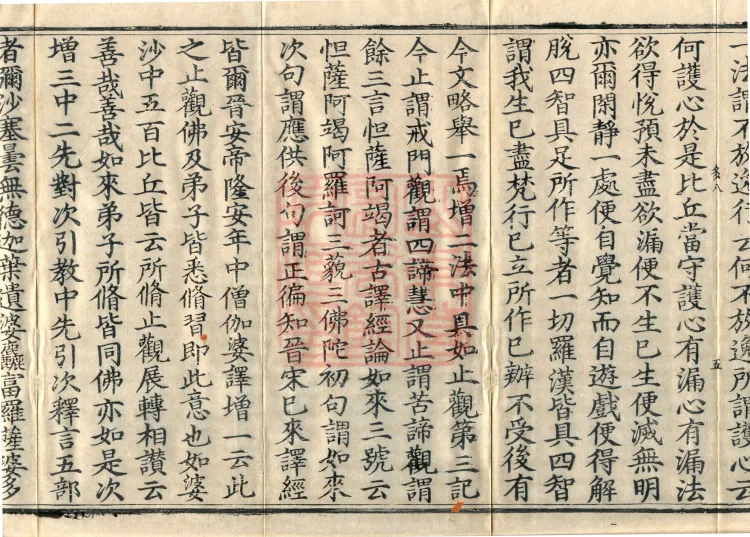 一法謂不放逸行云何不放逸所謂護心云
何護心於是比丘當守護心有漏心有漏法
欲得悅預未盡欲漏便不生已生便滅無明
亦爾閑靜一處便自覺知而自遊戲便得解
脫四智具足所作等者一切羅漢皆具四智
謂我生已盡梵行已立所作已辦不受後有
今文略舉一焉增二法中具如止觀第三記
今止謂戒門觀謂四諦慧又止謂苦諦觀謂
餘三言怛薩阿竭者古譯經論如來三號云
怛薩阿竭阿羅訶三藐三佛陀初句謂如來
次句謂應供後句謂正徧知晉宋已來譯經
皆爾晉安帝隆安年中僧伽婆譯增一云此
之止觀佛及弟子皆悉脩習即此意也如婆
沙中五百比丘皆云所脩止觀展轉相讚云
善哉善哉如來弟子所脩皆同佛亦如是次
增三中二先對次引教中先引次釋言五部
者彌沙塞曇無德迦葉遺婆麤富羅薩婆多
五